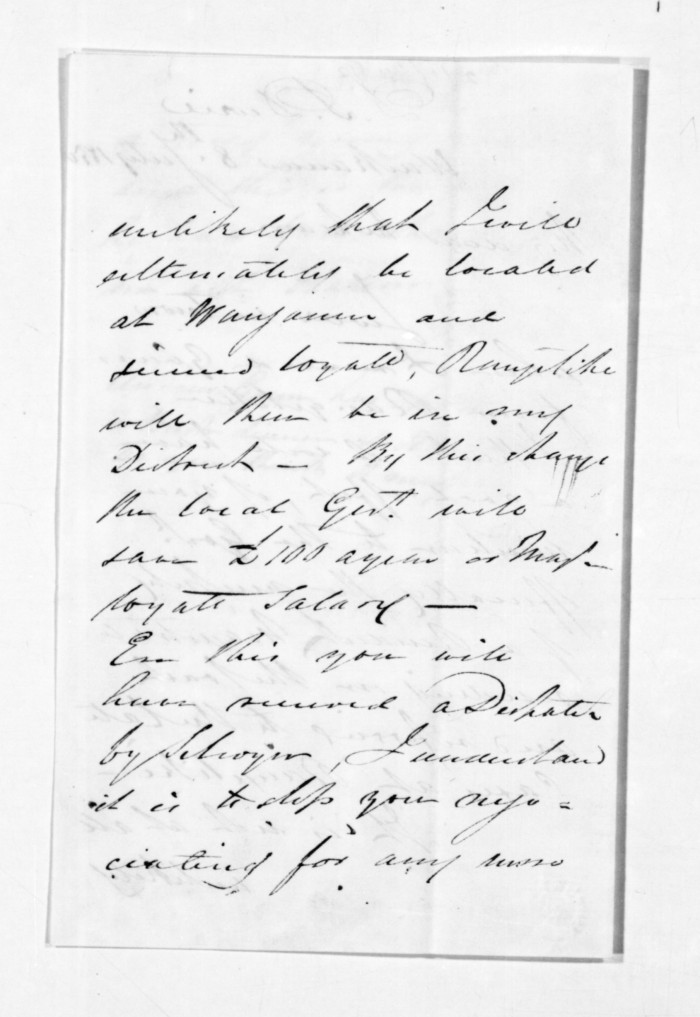 unlikely that I will
alternately be located
at Wanganui and
Logatt, Rangitikei
will then be in my
District — By this change
the local Govt. will
save £100 a year
Salary —
Ere this you will
have received a Dispatch
by Selwyn, I understand
it is to stop you nego=
ciating for any more